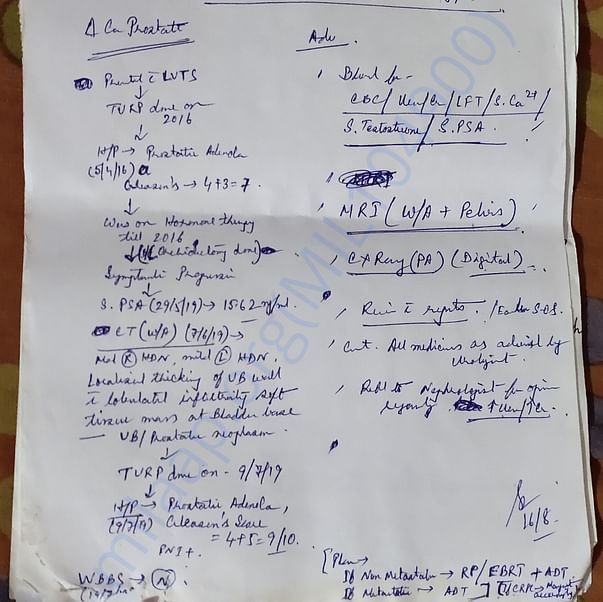 Δ Ca Prostate
Presented c̄ LUTS
↓
TURP done on
2016
↓
H/P → Prostatic Adenoca
(5/4/16)
Gleason's → 4+3=7.
↓
Was on Hormonal therapy
till 2016
↓ (Orchidectomy done)
Symptomatic Progression
↓
S. PSA (29/5/19) → 15.62 ng/ml.
↓
CT (W/A) (7/6/19) →
Mod Ⓡ HDN, mild Ⓛ HDN.
Localised thicking of UB wall
c̄ lobulated infiltrating soft
tissue mass at Bladder base
— UB/Prostatic neoplasm.
↓
TURP done on - 9/7/19
↓
H/P → Prostatic Adenoca,
(9/7/19) Gleason's Score
= 4+5=9/10.
PNI+.
WBBS → Ⓝ.
Adv.
Blood for -
CBC/Ur/Cr/LFT/S.Ca2+/
S. Testosterone/S.PSA.
MRI (W/A + Pelvis)
CX Ray (PA) (Digital)
Review c̄ reports. /Earlier S.O.S.
Cont. All medicines as advised by
Urologist.
Ref to Nephrologist for opinion
regarding ↑Ur/↑Cr.
16/8.
[Plan →
If Non Metastatic → RP/EBRT + ADT
If Metastatic → ADT ] [? CRPC →
accordingly
milaap.org